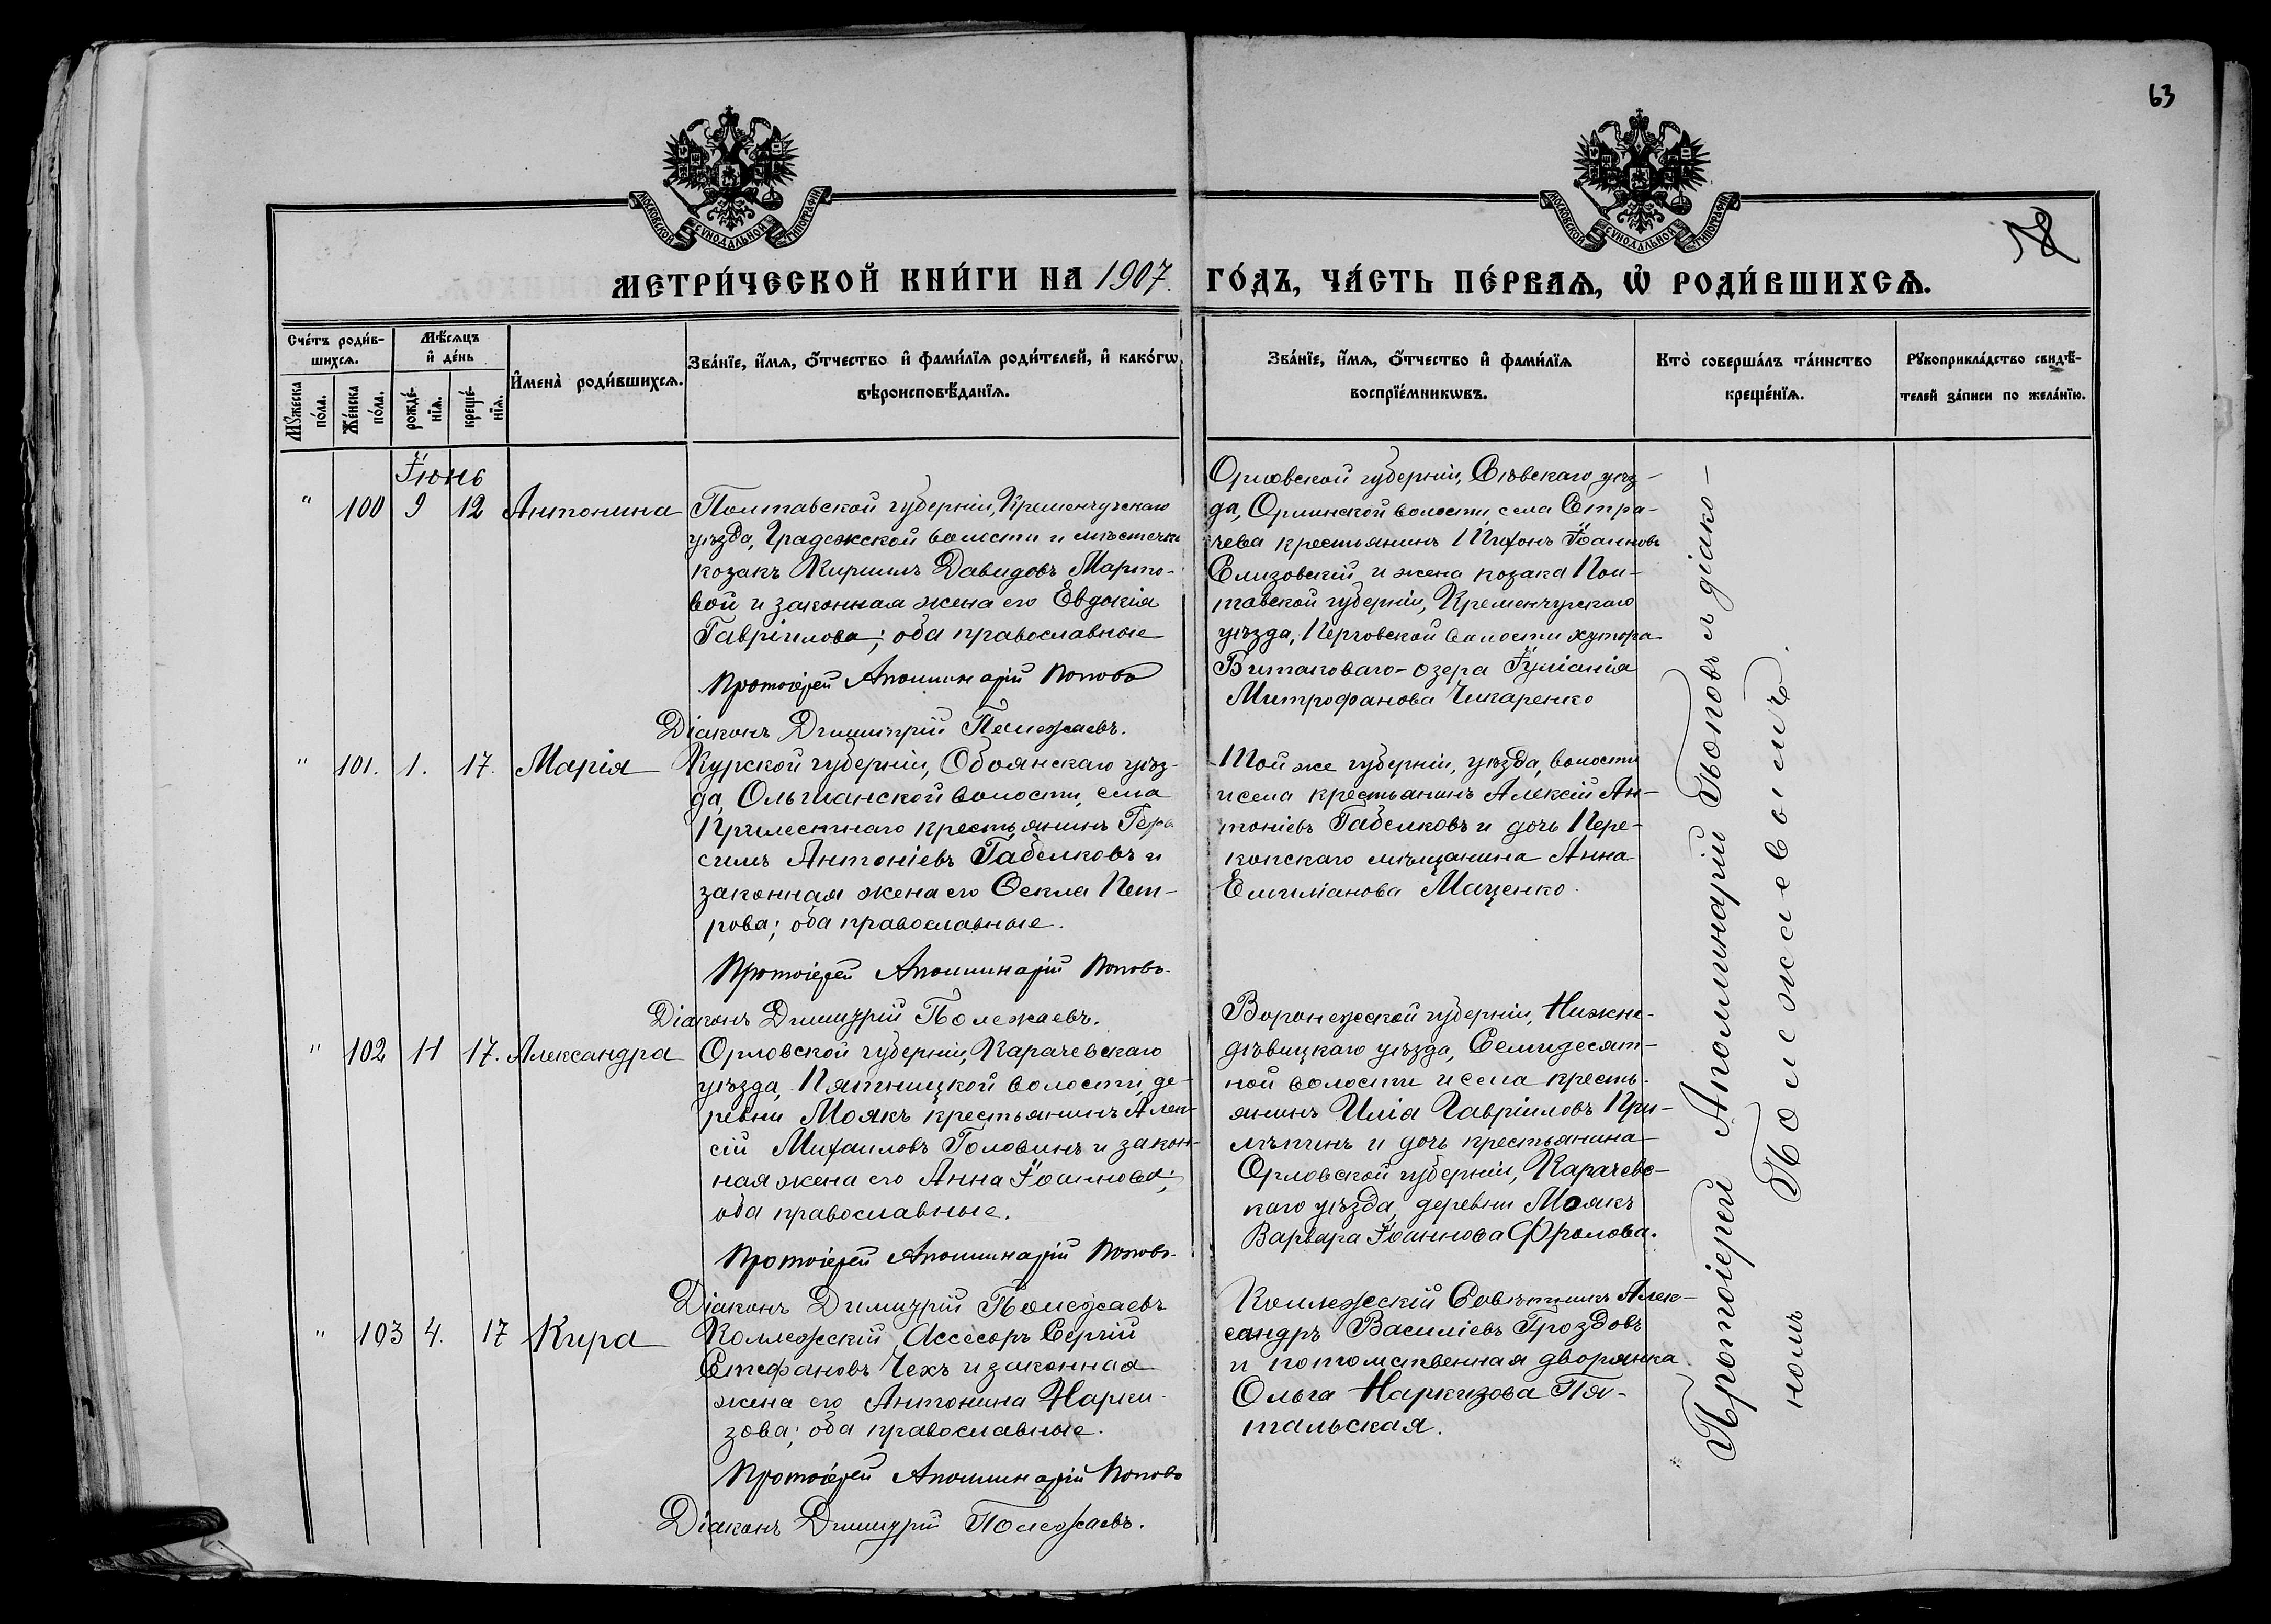 63
МОСКОВСКОЙ СѴНОДАЛЬНОЙ ТИПОГРАФІИ
МОСКОВСКОЙ СѴНОДАЛЬНОЙ ТИПОГРАФІИ
58
МЕТРИ́ЧЕСКОЙ КНИ́ГИ НА 1907. ГО́ДЪ, ЧА́СТЬ ПЕ́РВАѦ, Ѡ҆ РОДИ́ВШИХСѦ.
Сче́тъ роди́в-
шихсѧ.
Мѣ́сѧцъ
и҆ де́нь
Мꙋ́жеска
по́ла.
Же́нска
по́ла.
рожде́-
нїѧ.
креще́-
нїѧ.
И҆мена̀ роди́вшихсѧ.
Зва́нїе, и҆́мѧ, ѻ҆́тчество и҆ фами́лїѧ роди́телей, и҆ како́гѡ
вѣроисповѣ́данїѧ.
Зва́нїе, и҆́мѧ, ѻ҆́тчество и҆ фами́лїѧ
воспрїе́мникѡвъ.
Кто̀ соверша́лъ та́инство
креще́нїѧ.
Рꙋкоприкла́дство свидѣ́-
телей за́писи по жела́нїю.
Іюнь
" 100 9 12 Антонина
Полтавской губерніи, Кременчугскаго
уѣзда, Градежской волости и мѣстечка
козакъ Кириллъ Давидовъ Марто-
вой и законная жена его Евдокія
Гавріилова; оба православные
Протоіерей Аполлинарій Поповъ
Діаконъ Димитрій Полежаевъ.
Орловской губерніи, Сѣвскаго уѣз-
да, Орлинской волости, села Стра-
чева крестьянинъ Тихонъ Іоанновъ
Елизовскій и жена козака Пол-
тавской губерніи, Кременчугскаго
уѣзда, волости хутора
озера Іуліанія
Митрофанова Чикаренко
" 101. 1. 17. Марія
Курской губерніи, Обоянскаго уѣз-
да, Ольшанской волости, села
Прилестнаго крестьянинъ Гера
симъ Антоніевъ Габелковъ и
законная жена его Ѳекла Пет-
рова; оба православные.
Протоіерей Аполлинарій Поповъ.
Діаконъ Димитрій Полежаевъ.
Той же губерніи, уѣзда, волости
и села крестьянинъ Алексій Ан-
тоніевъ Габелковъ и дочь Пере-
копскаго мѣщанина Анна
Маценко.
" 102 11 17. Александра
Орловской губерніи, Карачевскаго
уѣзда, Пятницкой волости, де-
ревни Моякъ крестьянинъ Алек-
сій Михаиловъ Головинъ и закон-
ная жена его Анна Іоаннова;
оба православные.
Протоіерей Аполлинарій Поповъ.
Діаконъ Димитрій Полежаевъ
Воронежской губерніи, Нижне-
дѣвицкаго уѣзда, Семидесят-
ной волости и села кресть-
янинъ Илія Гавріиловъ При-
лѣпинъ и дочь крестьянина
Орловской губерніи, Карачевс-
каго уѣзда, деревни Моякъ
Варвара Іоаннова Фролова.
" 103 4. 17 Кира
Коллежскій Ассесоръ Сергій
Стефановъ Чехъ и законная
жена его Антонина Нарки-
зова; оба православные.
Протоіерей Аполлинарій Поповъ
Діаконъ Димитрій Полежаевъ.
Коллежскій Совѣтникъ Алек-
сандръ Василіевъ Гроздовъ
и потомственная дворянка
Ольга Наркизова Пя-
тальская.
Протоіерей Аполлинарій Поповъ и діако-
номъ Полежаевымъ.